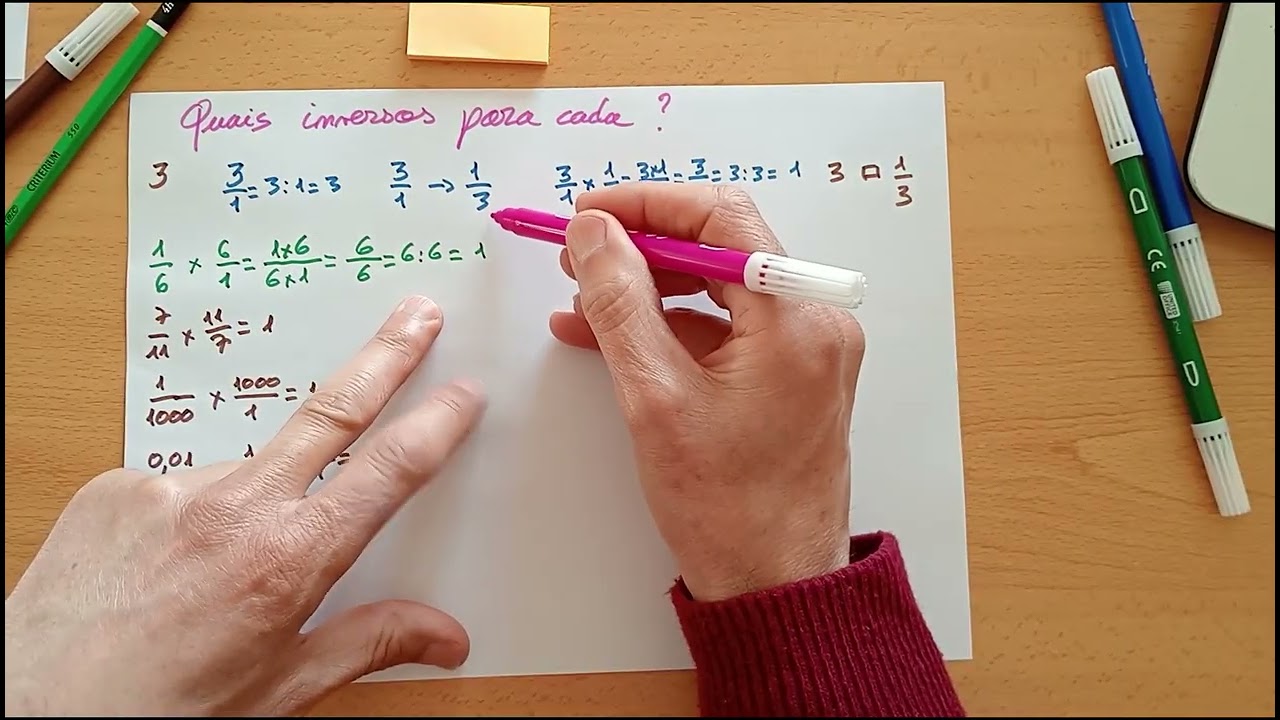 Quais inversos para cada ?
3 3/1 = 3:1=3 3/1 → 1/3 3/1 × 1/ = 3×1/ = 3/ = 3:3= 1 3 □ 1/3
1/6 × 6/1 = 1×6/6×1 = 6/6 = 6:6= 1
7/11 × 11/7 = 1
1/1000 × 1000/1 = 1
0,01 1 =
4H
CRITERIUM 550
CE